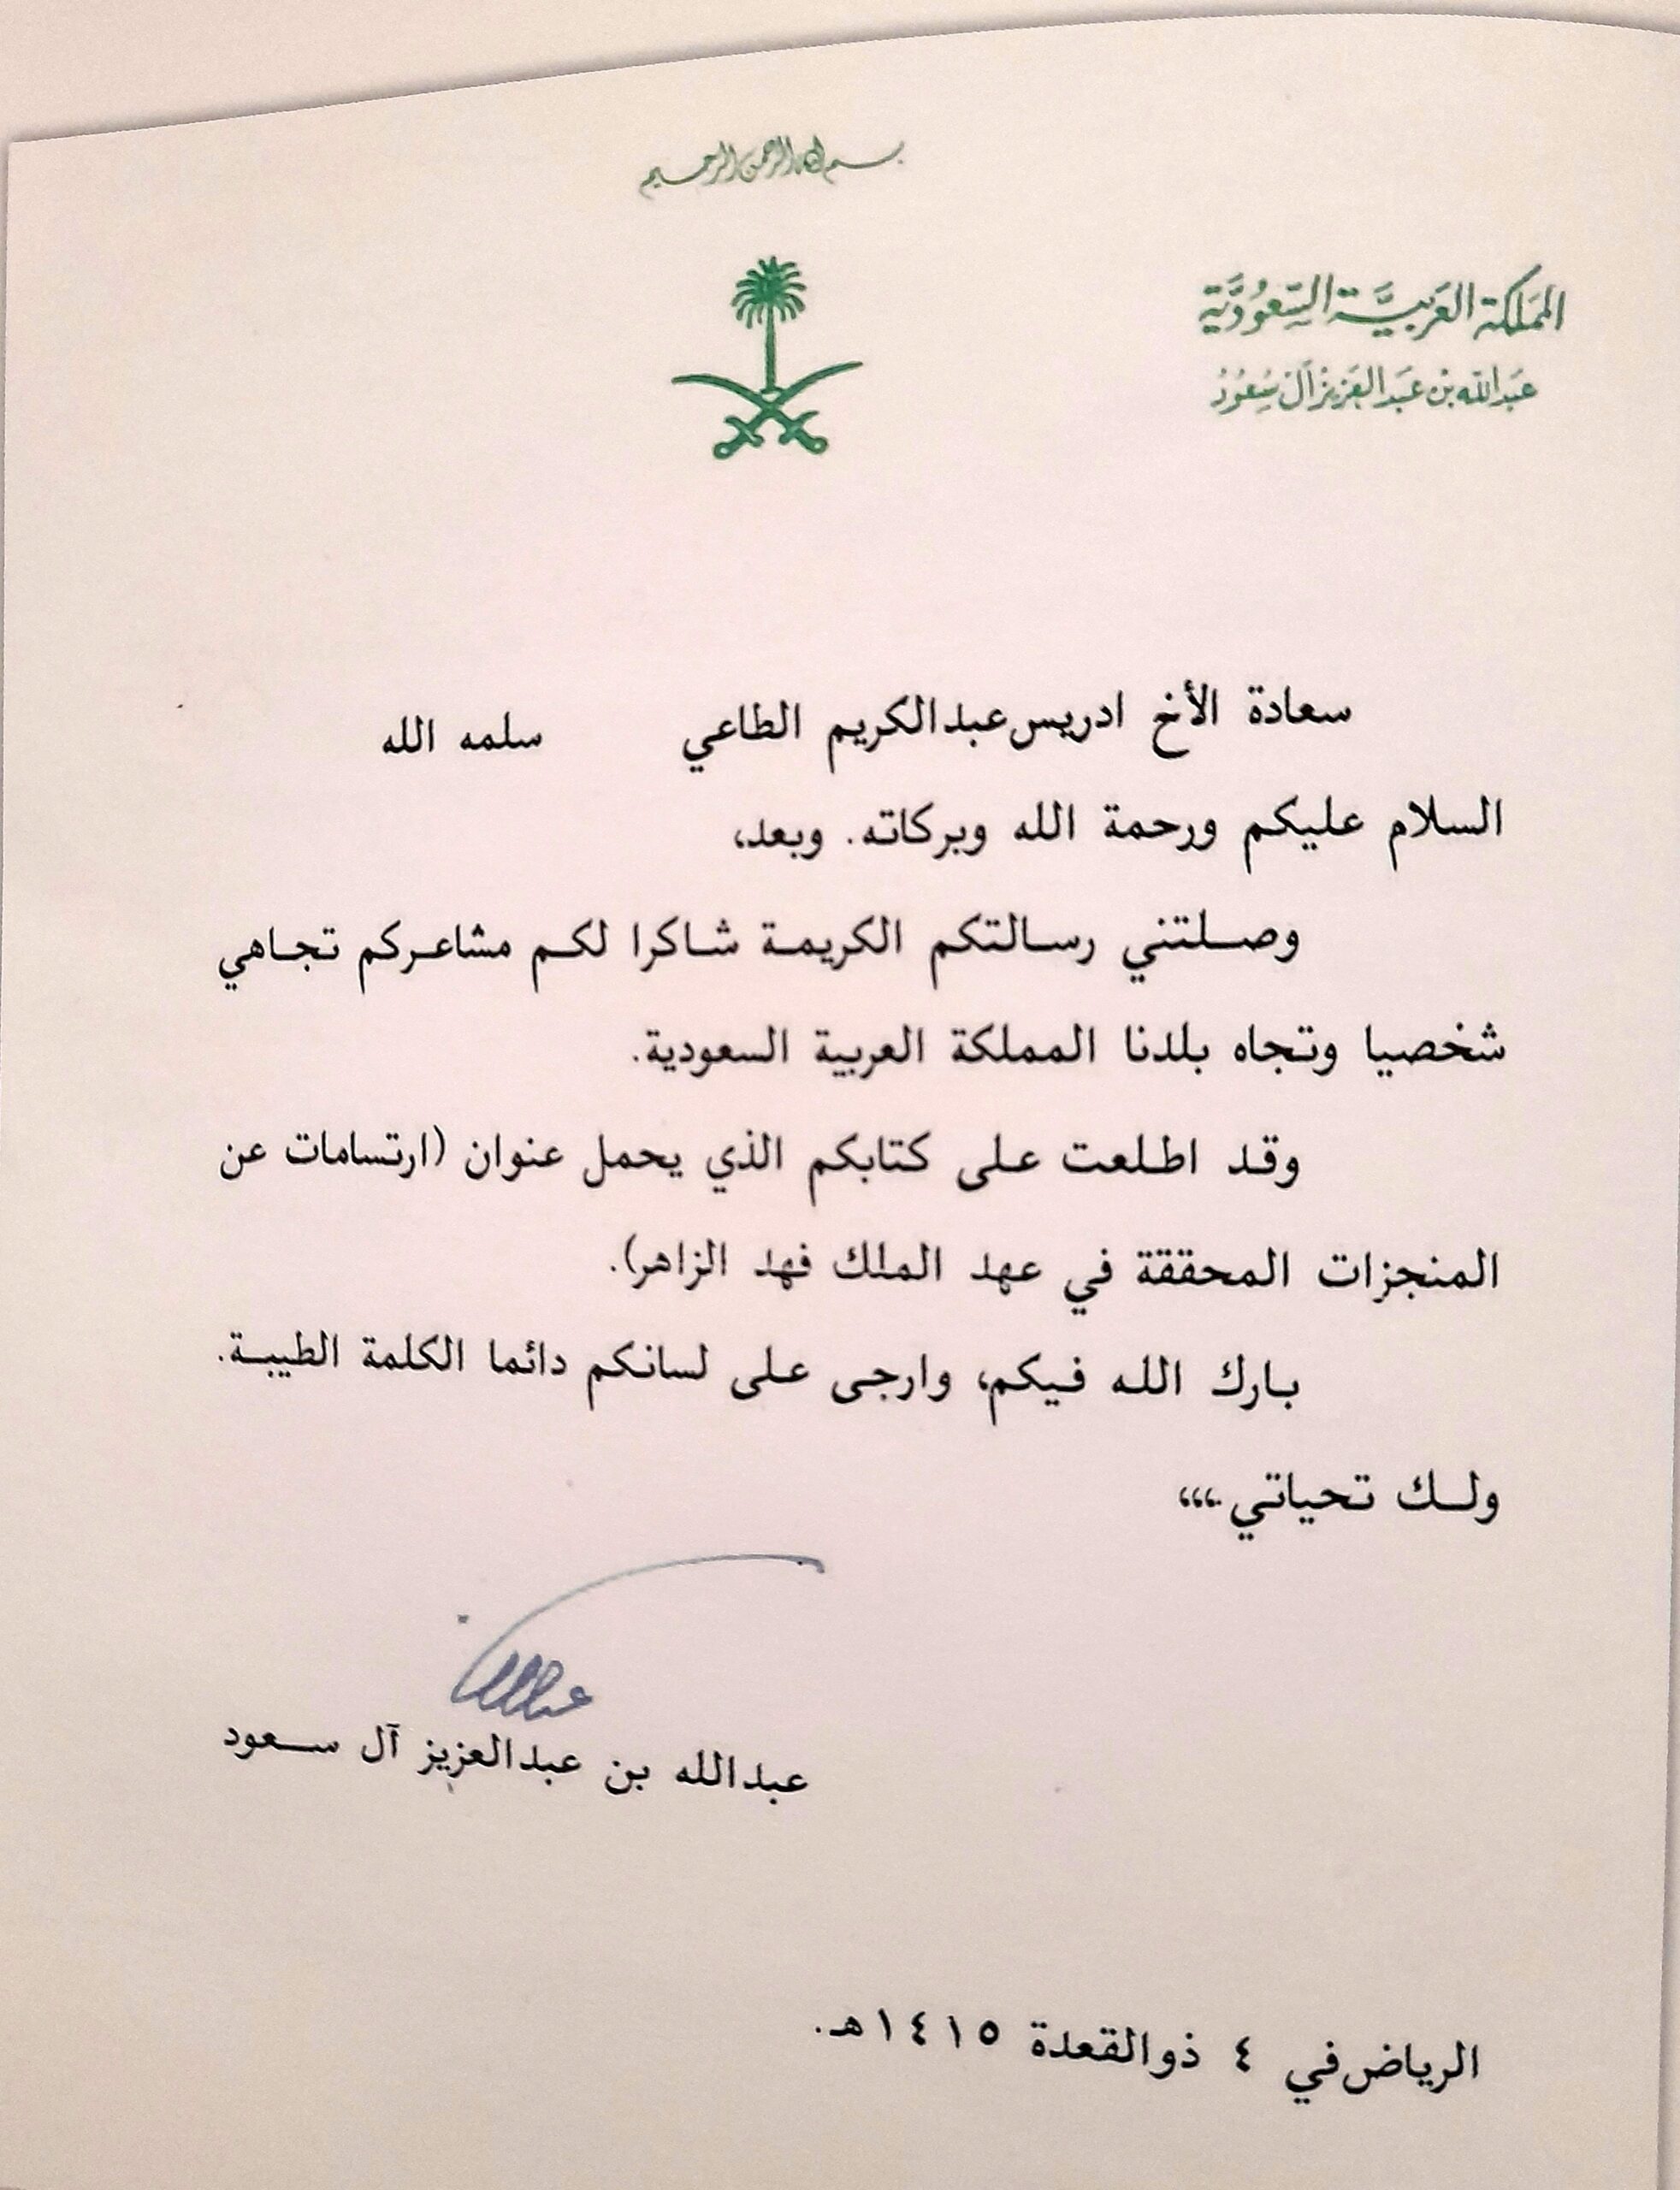 بسم الله الرحمن الرحيم
المملكة العربية السعودية
عبدالله بن عبدالعزيز آل سعود
سعادة الأخ ادريس عبدالكريم الطاعي سلمه الله
السلام عليكم ورحمة الله وبركاته. وبعد،
وصلتني رسالتكم الكريمة شاكرا لكم مشاعركم تجاهي
شخصيا وتجاه بلدنا المملكة العربية السعودية.
وقد اطلعت على كتابكم الذي يحمل عنوان (ارتسامات عن
المنجزات المحققة في عهد الملك فهد الزاهر).
بارك الله فيكم، وارجى على لسانكم دائما الكلمة الطيبة.
ولك تحياتي،،،
عبدالله
عبدالله بن عبدالعزيز آل سعود
الرياض في ٤ ذوالقعدة ١٤١٥هـ.